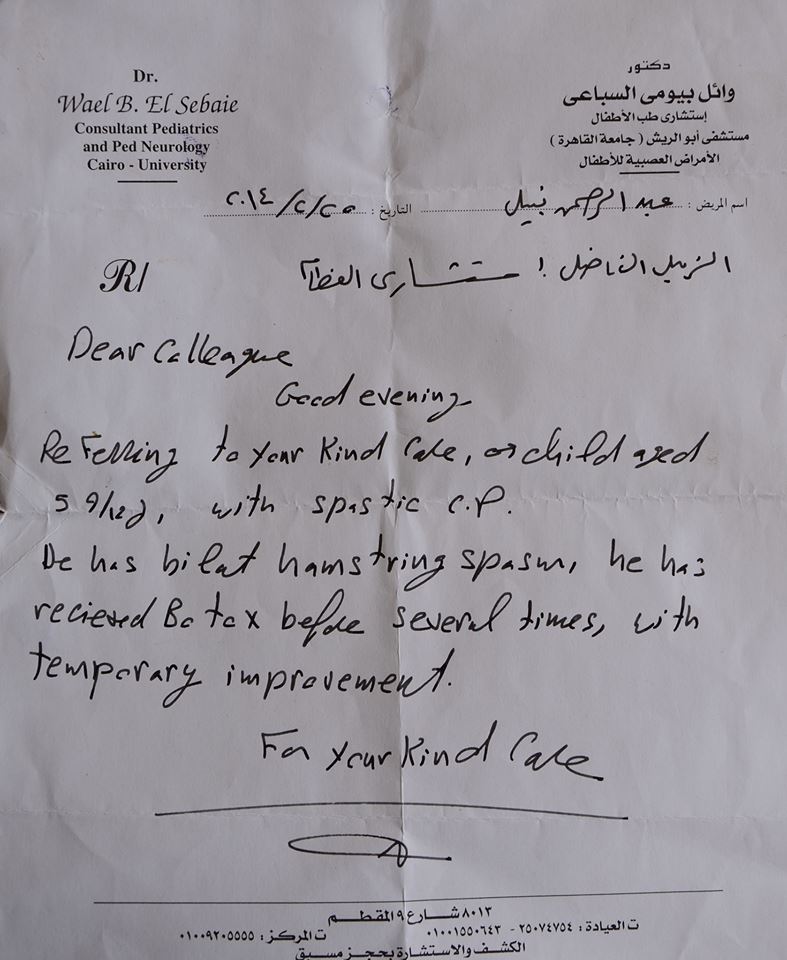 Dr.
Wael B. El Sebaie
Consultant Pediatrics
and Ped Neurology
Cairo - University
دكتور
وائل بيومى السباعى
إستشارى طب الأطفال
مستشفى أبو الريش ( جامعة القاهرة )
الأمراض العصبية للأطفال
اسم المريض : عبد الرحمن نبيل التاريخ : ٢٠١٤/٢/٢٥
R/
الزميل الفاضل / مستشارى العظام
Dear Colleague
Good evening
Referring to your kind Care, a child aged
5 9/12 y, with spastic C.P.
He has bilat hamstring spasm, he has
recieved Botox before several times, with
temporary improvement.
For your kind Care
٨٠١٣ شارع ٩ المقطم
ت العيادة : ٢٥٠٧٤٧٥٤ - ٠١٠٠١٥٥٠٦٤٣ ت المركز : ٠١٠٠٩٢٠٥٥٥٥
الكشف والاستشارة بحجز مسبق